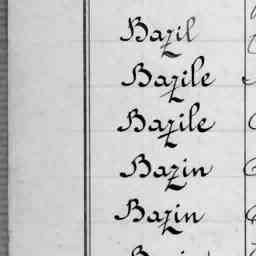 Bazil
Bazile
Bazile
Bazin
Bazin